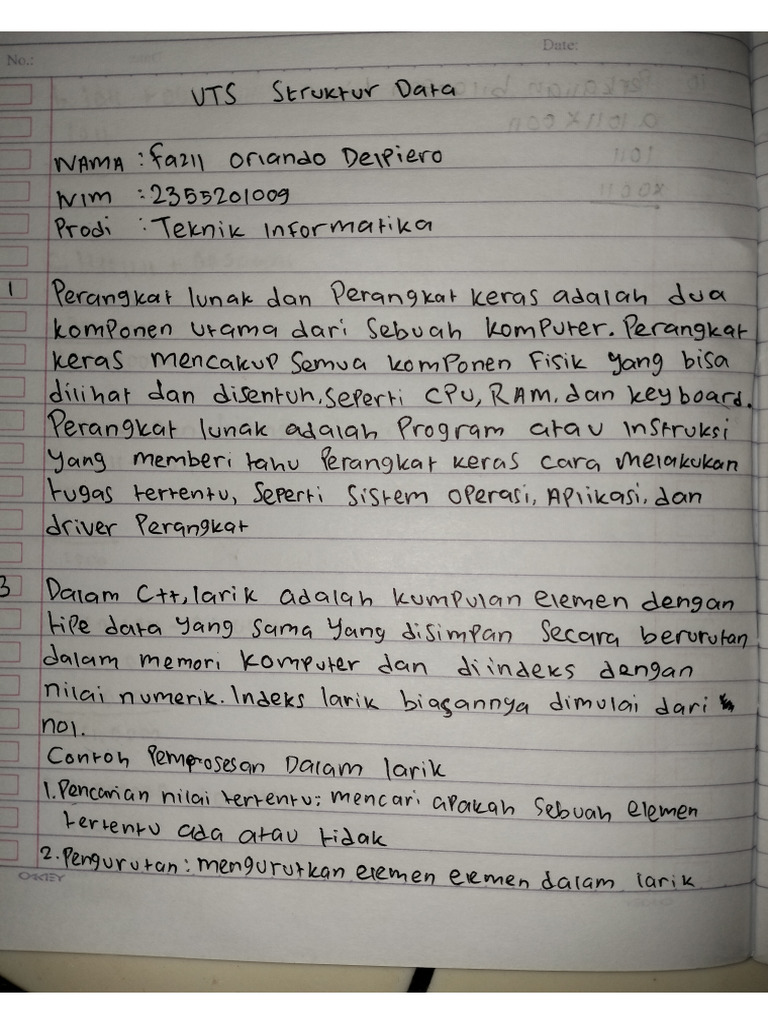 No.:
Date:
UTS Struktur Data
NAMA : Fazil Orlando Delpiero
NIM : 2355201009
Prodi : Teknik Informatika
1 Perangkat lunak dan Perangkat keras adalah dua
komponen utama dari sebuah komputer. Perangkat
keras mencakup semua komponen fisik yang bisa
dilihat dan disentuh, seperti CPU, RAM, dan keyboard.
Perangkat lunak adalah Program atau instruksi
yang memberi tahu perangkat keras cara melakukan
tugas tertentu, seperti sistem operasi, Aplikasi, dan
driver Perangkat
3 Dalam C++, larik adalah kumpulan elemen dengan
tipe data yang sama yang disimpan secara berurutan
dalam memori komputer dan diindeks dengan
nilai numerik. Indeks larik biasannya dimulai dari
nol.
Contoh Pemprosesan Dalam larik
1. Pencarian nilai tertentu: mencari apakah sebuah elemen
tertentu ada atau tidak
2. Pengurutan: mengurutkan elemen elemen dalam larik
OKEY